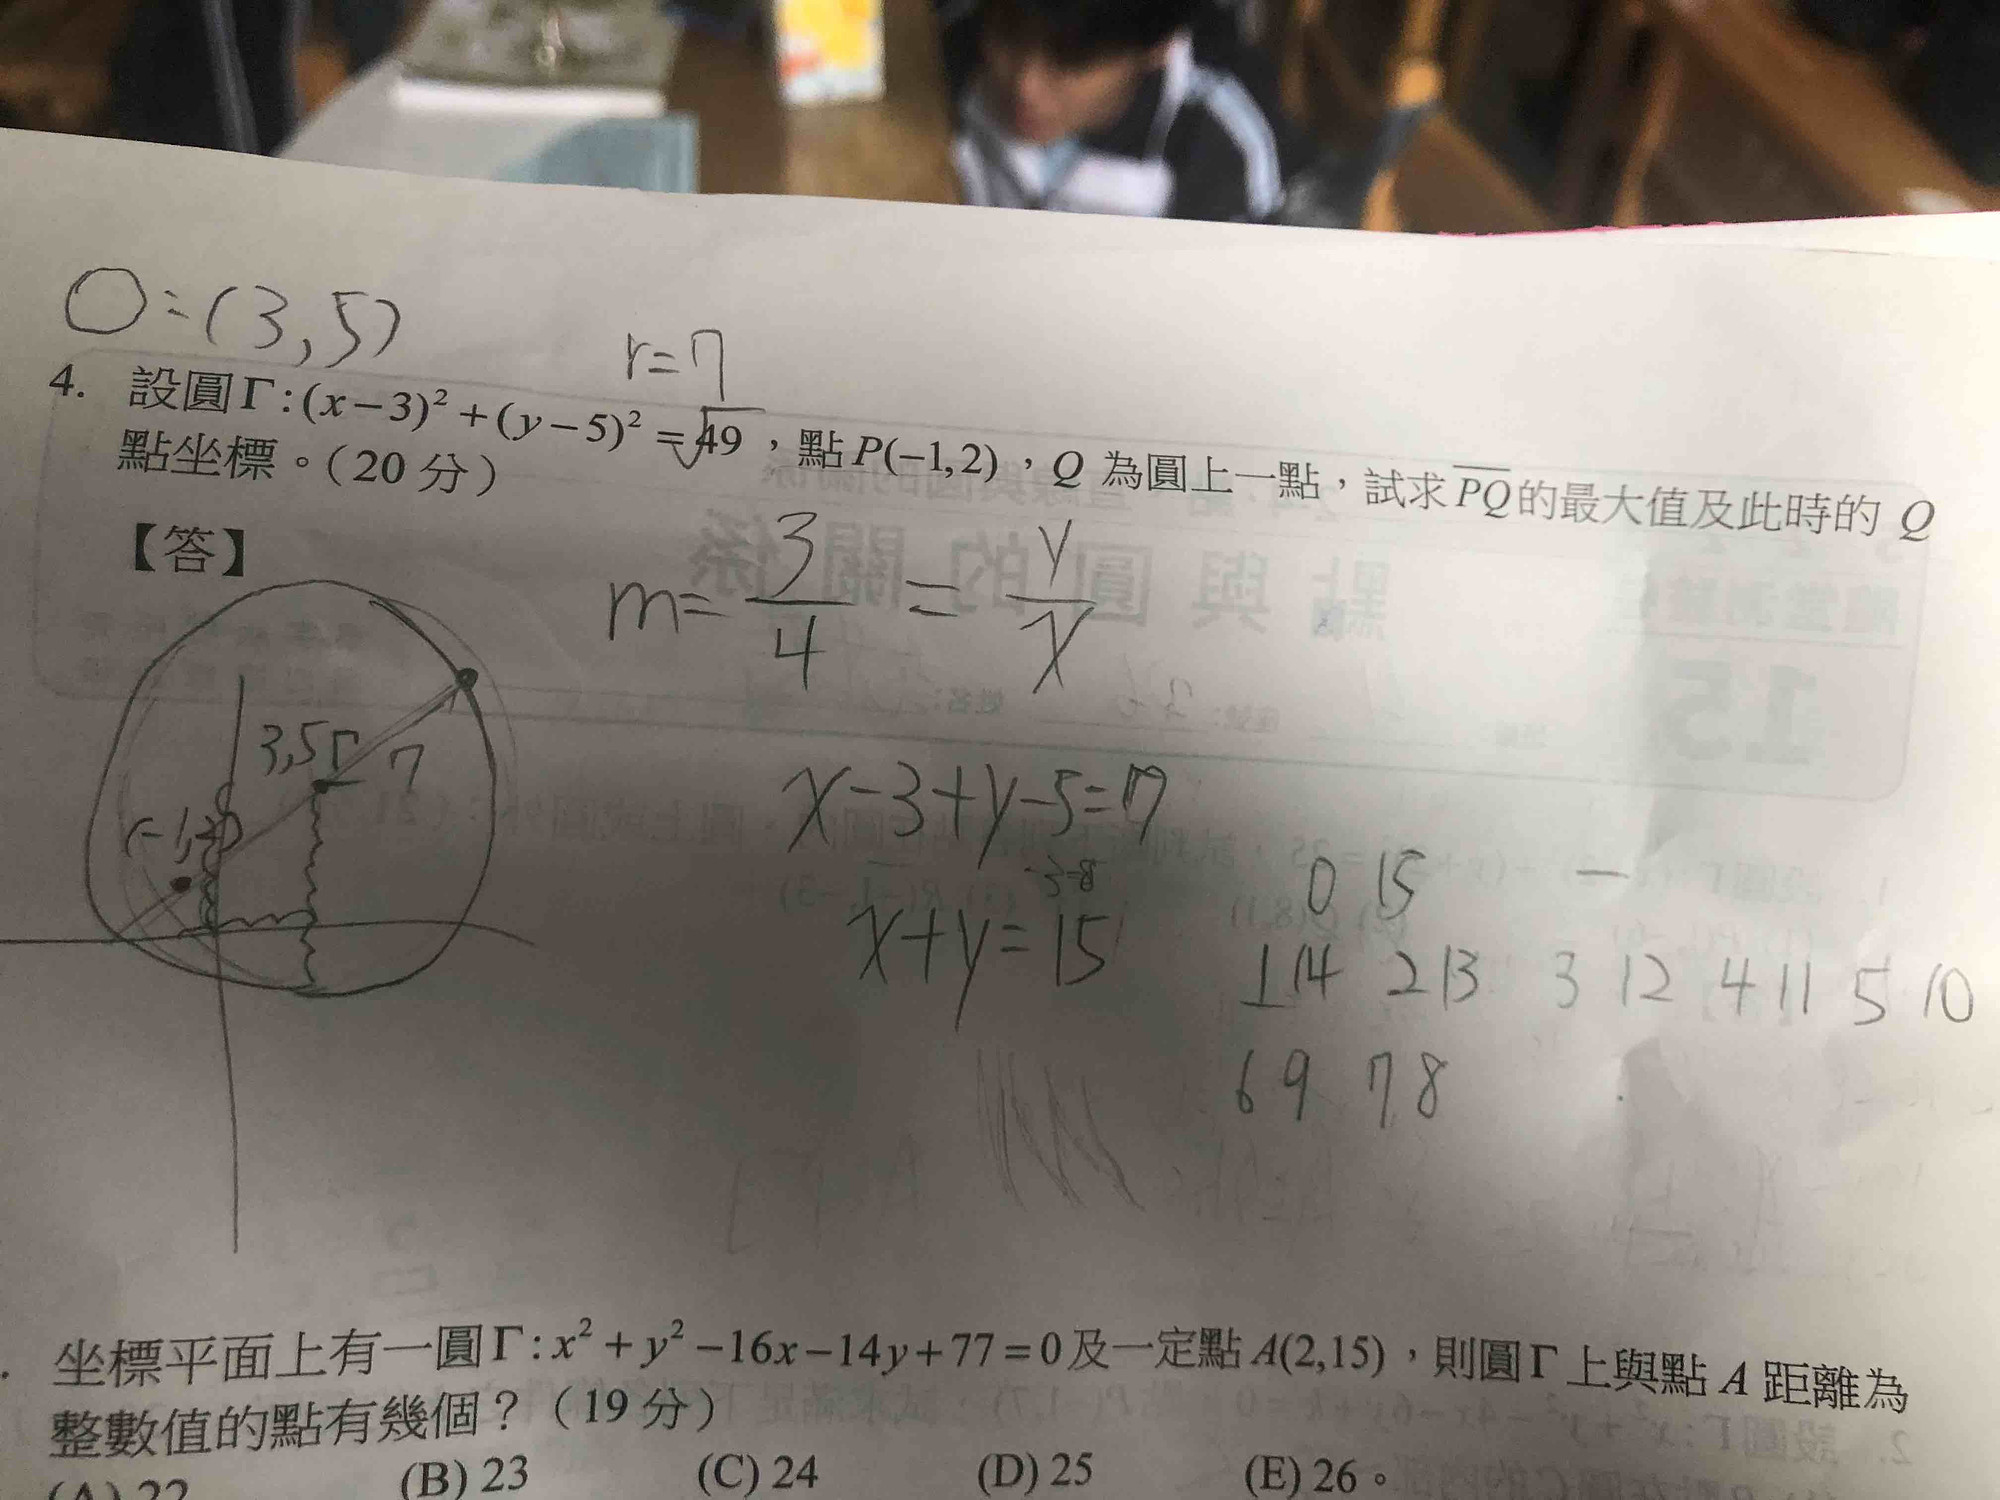 O=(3,5)
r=7
4. 設圓Γ:(x−3)²+(y−5)²=√49,點P(−1,2),Q 為圓上一點,試求PQ的最大值及此時的 Q
點坐標。(20 分)
【答】
m=3/4=y/x
3,5
7
x-3+y-5=7
x+y=15
0 15
1 14 2 13 3 12 4 11 5 10
6 9 7 8
坐標平面上有一圓Γ:x²+y²−16x−14y+77=0及一定點A(2,15),則圓Γ上與點 A 距離為
整數值的點有幾個?(19 分)
(A) 22 (B) 23 (C) 24 (D) 25 (E) 26。